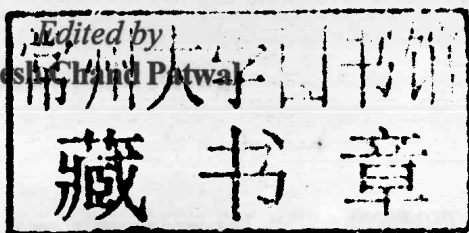 Edited by
esh Chand Patwal
常州大学图书馆
藏书章